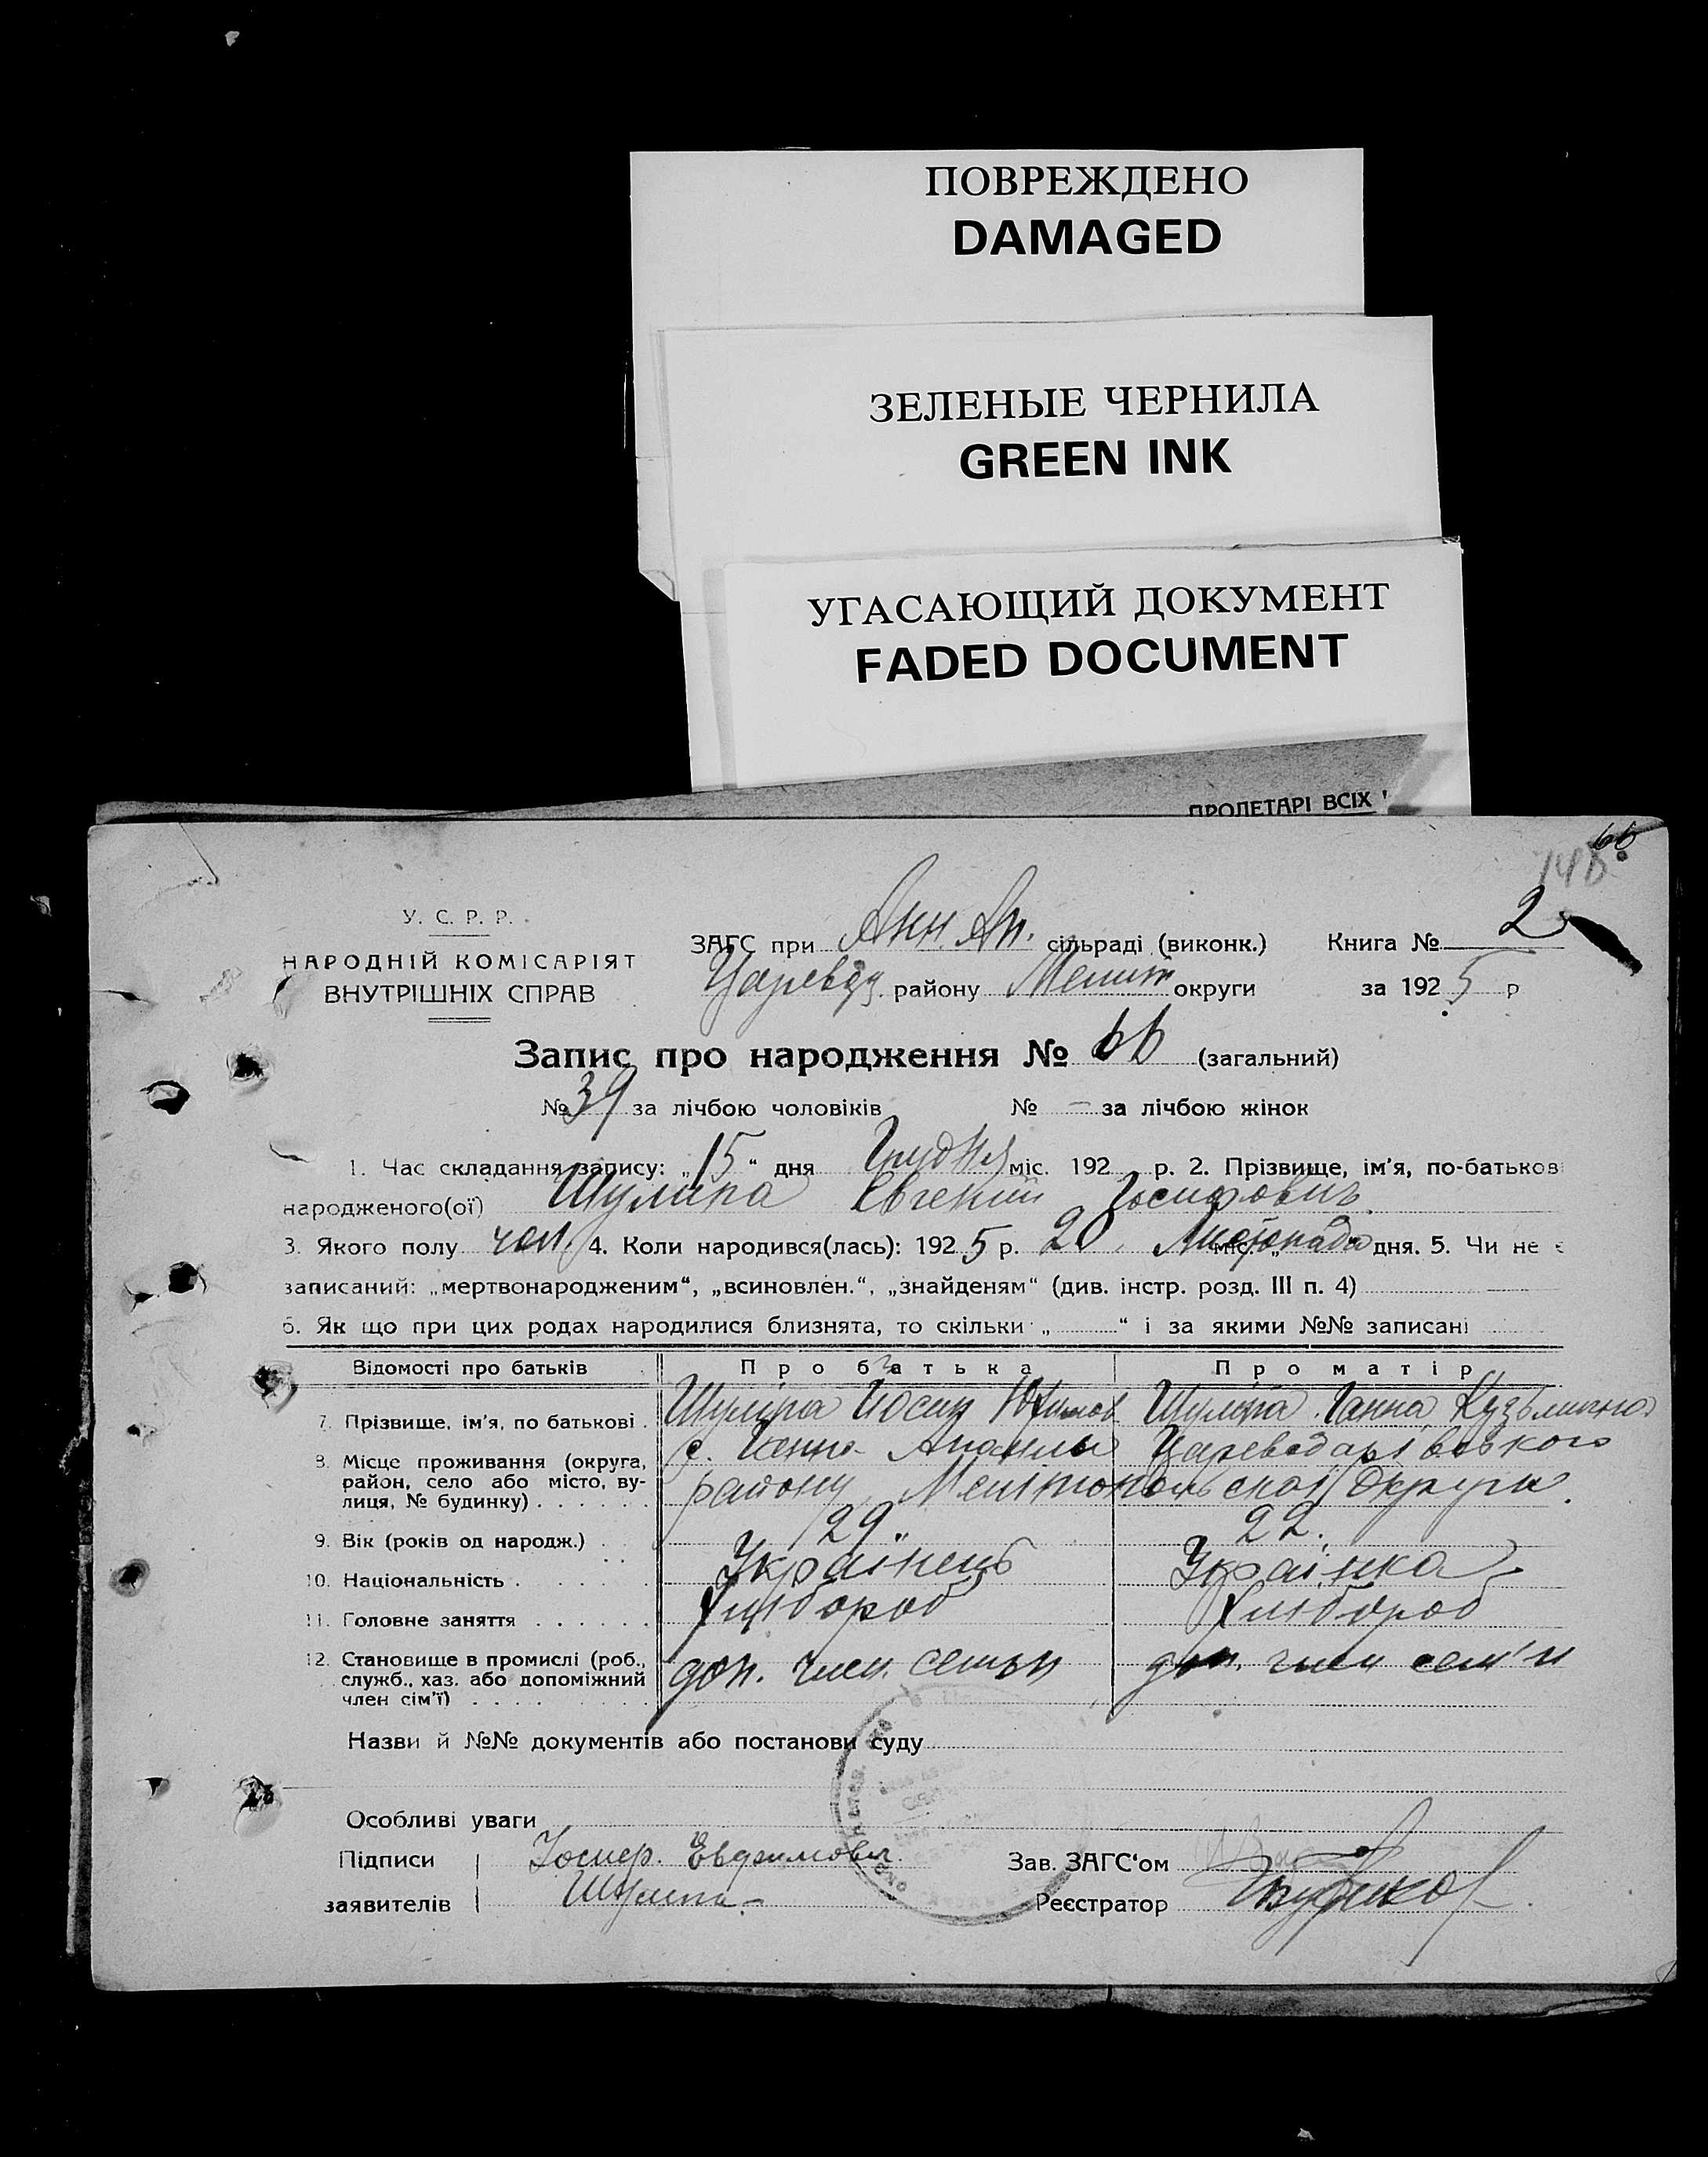 ПОВРЕЖДЕНО
DAMAGED
ЗЕЛЕНЫЕ ЧЕРНИЛА
GREEN INK
УГАСАЮЩИЙ ДОКУМЕНТ
FADED DOCUMENT
ПРОЛЕТАРІ ВСІХ
66
148
У. С. Р. Р.
НАРОДНІЙ КОМІСАРІЯТ
ВНУТРІШНІХ СПРАВ
ЗАГС при Анн. Ап. сільраді (виконк.) Книга № 2
району Меліт округи за 1925 р
Запис про народження № 66 (загальний)
№ 39 за лічбою чоловіків № — за лічбою жінок
1. Час складання запису: „15“ дня Грудня міс. 192 р. 2. Прізвище, ім'я, по-батькові
народженого(ої) Шуліпа Євгений Іосифович
3. Якого полу чол. 4. Коли народився(лась): 1925 р. 20 Листопада дня. 5. Чи не є
записаний: „мертвонародженим“, „всиновлен.“, „знайденям“ (див. інстр. розд. III п. 4)
6. Як що при цих родах народилися близнята, то скільки „ “ і за якими №№ записані
Відомості про батьків Про батька Про матір
7. Прізвище, ім'я, по батькові Шуліпа Йосип Шуліпа Ганна Кузьминна
8. Місце проживання (округа, район, село або місто, вулиця, № будинку) с. Ганно-
району Мелітопольської Округи.
9. Вік (років од народж.) 29 22.
10. Національність Українець Українка
11. Головне заняття Хлібороб Хлібороб
12. Становище в промислі (роб., служб., хаз. або допоміжний член сім'ї) доп. член. семьи доп. член сем'и
Назви й №№ документів або постанови суду
Особливі уваги
Підписи Евфимович
заявителів Шулипа
Зав. ЗАГС'ом
Реєстратор